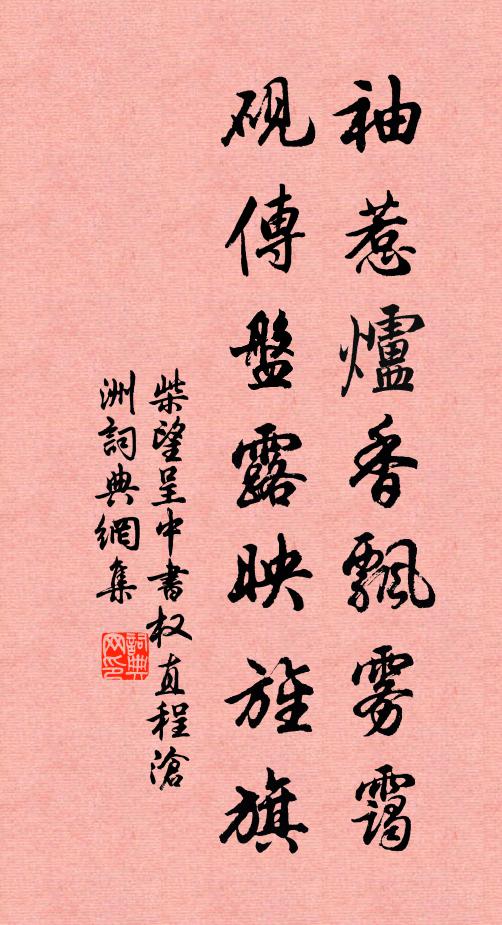 袖惹爐香飄雾靄
硯傳盤露映旌旗
柴望呈中書权直程滄
洲詞典網集
詞典网印